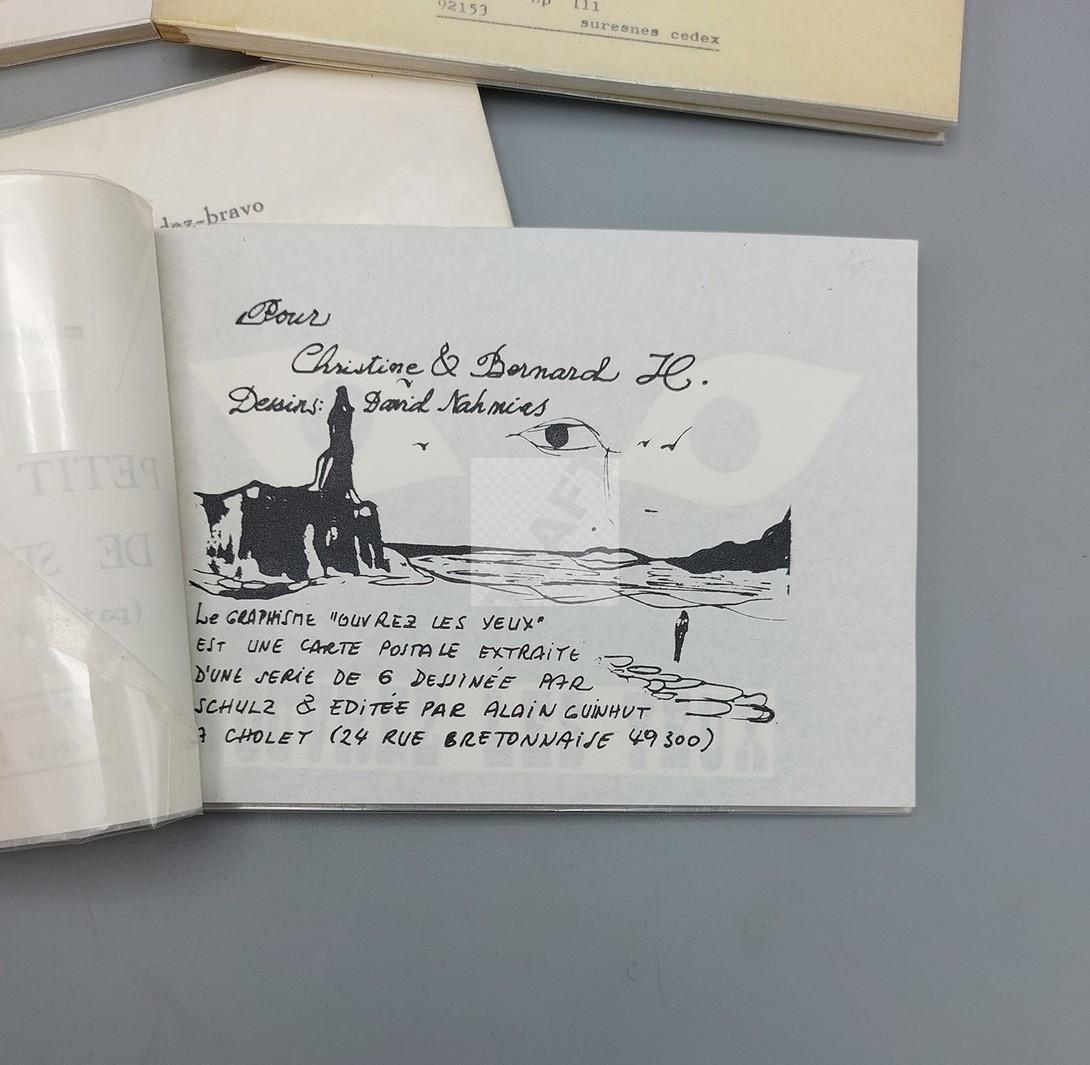 bp 111
92153 suresnes cedex
dez-bravo
Pour
Christine & Bernard H.
Dessins: David Nahmias
LE GRAPHISME "OUVREZ LES YEUX"
EST UNE CARTE POSTALE EXTRAITE
D'UNE SERIE DE 6 DESSINÉE PAR
SCHULZ & EDITÉE PAR ALAIN GUINHUT
A CHOLET (24 RUE BRETONNAISE 49300)
PETIT
DE